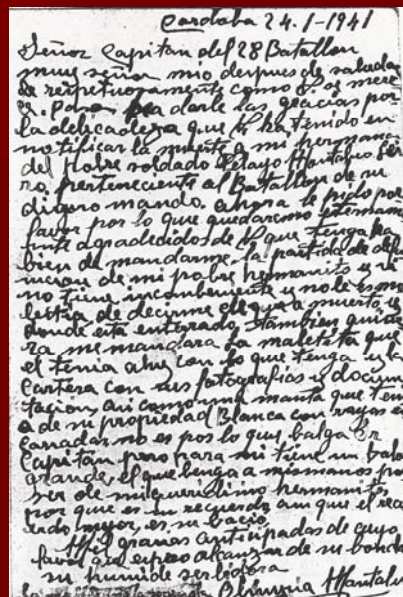 Cordoba 24-1-1941
Señor Capitan del 28 Batallon
muy señor mio despues de saludar
le respetuosamente como V. se mere
ce. Paso a darle las gracias por
la delicadeza que V. ha tenido en
notificar la muerte a mi hermano
del pobre soldado Pelayo Mantalvo
ro, perteneciente al Batallon de su
digno mando. ahora le pido por
favor por lo que quedaremos
agradecidos de V. que tenga ha
bien de mandarme la partida de defu
ncion de mi pobre hermanito y si
no tiene incombeniente y no le es mo
lestia de decirme de que a muerto y
donde esta enterrado, tambien quisie
ra me mandara la maletita que
el tenia ahy con lo que tenga y la
Cartera con sus fotografias y docum
tacion, asi como una manta que ten
a de su propiedad Blanca con rayas en
carnadas no es por lo que balga Sr
Capitan pero para mi tiene un balor
grande, el que benga a mis manos por
ser de mi queridisimo hermanito
por que es un recuerdo aun que el recu
erdo mayor es su bacio
Mil gracias anticipadas de cuyo
favor que espero alcanzar de su bondad
su humilde serbidora